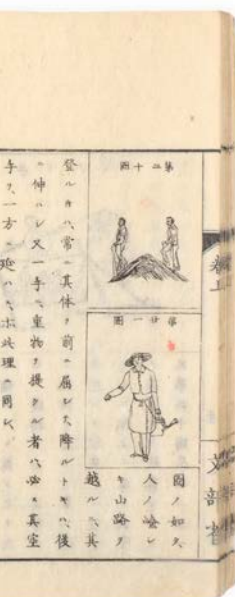 卷上
文部省
第二十圖
第廿一圖
圖ノ如ク、
人ノ嶮シ
キ山路ヲ
越ルニ、其
登ルキハ、常ニ其体ヲ前ニ屈シテ、降ルトキハ、後
ニ伸ハシ又一手ニ重物ヲ提クル者ハ、必ス其空
手ヲ、一方ニ延ハス、亦此理ニ同シ、